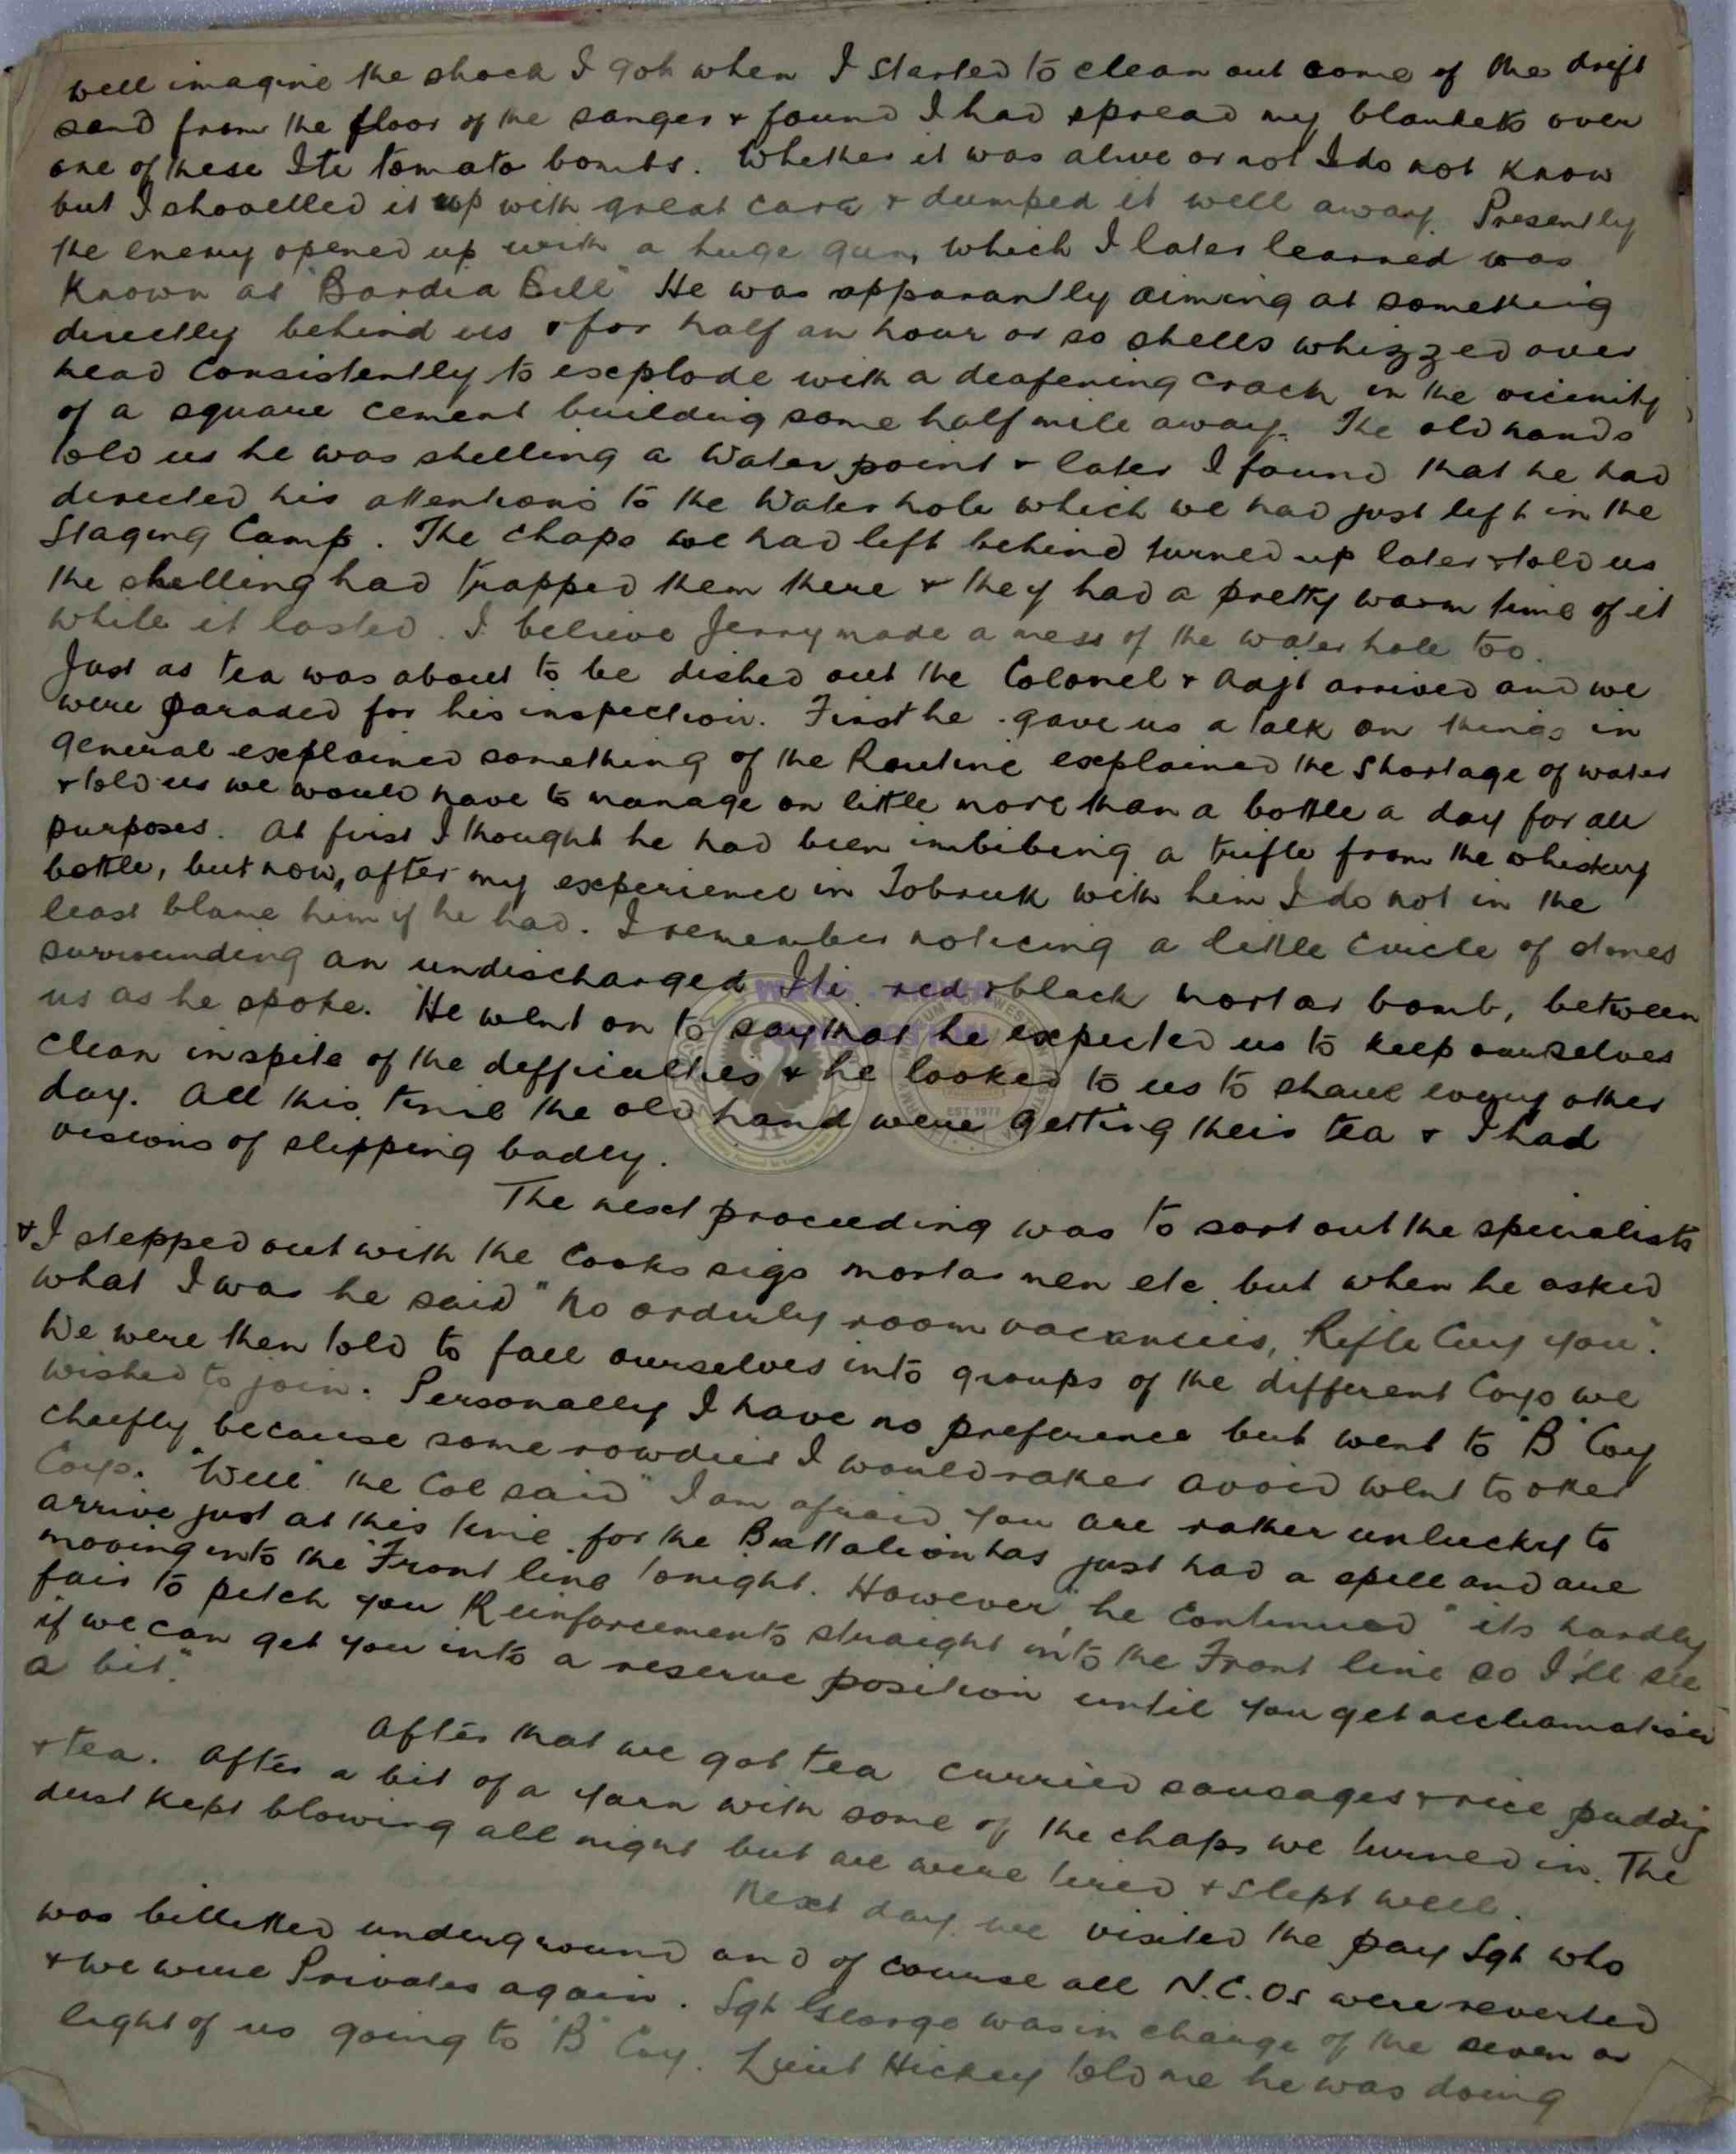 well imagine the shock I got when I started to clean out some of the drift
sand from the floor of the sanger & found I had spread my blankets over
one of these Ite tomato bombs. Whether it was alive or not I do not know
but I shovelled it up with great care & dumped it well away. Presently
the enemy opened up with a huge gun, which I later learned was
known as "Bardia Bill" He was apparantly aiming at something
directly behind us & for half an hour or so shells whizzed over
head consistently to explode with a deafening crack in the vicinity
of a square cement building some half mile away. The old hands
told us he was shelling a Water point & later I found that he had
directed his attentions to the Water hole which we had just left in the
Staging Camp. The chaps we had left behind turned up later & told us
the shelling had trapped them there & they had a pretty warm time of it
while it lasted. I believe Jerry made a mess of the water hole too.
Just as tea was about to be dished out the Colonel & Adjt arrived and we
were paraded for his inspection. First he gave us a talk on things in
general explained something of the Routine explained the shortage of water
& told us we would have to manage on little more than a bottle a day for all
purposes. At first I thought he had been imbibing a trifle from the whiskey
bottle, but now, after my experience in Tobruk with him I do not in the
least blame him if he had. I remember noticing a little circle of stones
surrounding an undischarged Iti red & black mortar bomb, between
us as he spoke. He went on to say that he expected us to keep ourselves
clean inspite of the difficulties & he looked to us to shave every other
day. All this time the old hand were getting their tea & I had
visions of slipping badly.
The next proceeding was to sort out the specialists
& I stepped out with the Cooks sigs mortar men etc but when he asked
what I was he said "No orderly room vacancies, Rifle Coy you".
We were then told to fall ourselves into groups of the different Coys we
wished to join. Personally I have no preference but went to "B" Coy
chiefly because some rowdies I would rather avoid went to other
Coys. "Well" the Col said "I am afraid you are rather unlucky to
arrive just at this time for the Battalion has just had a spell and are
moving into the Front line tonight. However" he continued "its hardly
fair to pitch you Reinforcements straight into the Front line so I'll see
if we can get you into a reserve position until you get acclamatised
a bit."
After that we got tea curried sausages & rice puddig
& tea. After a bit of a yarn with some of the chaps we turned in. The
dust kept blowing all night but we were tired & slept well.
Next day we visited the pay Sgt who
was billetted underground and of course all N.C.Os were reverted
& we were Privates again. Sgt George was in charge of the seven or
eight of us going to "B" Coy. Lieut Hickey told me he was doing
EST 1977